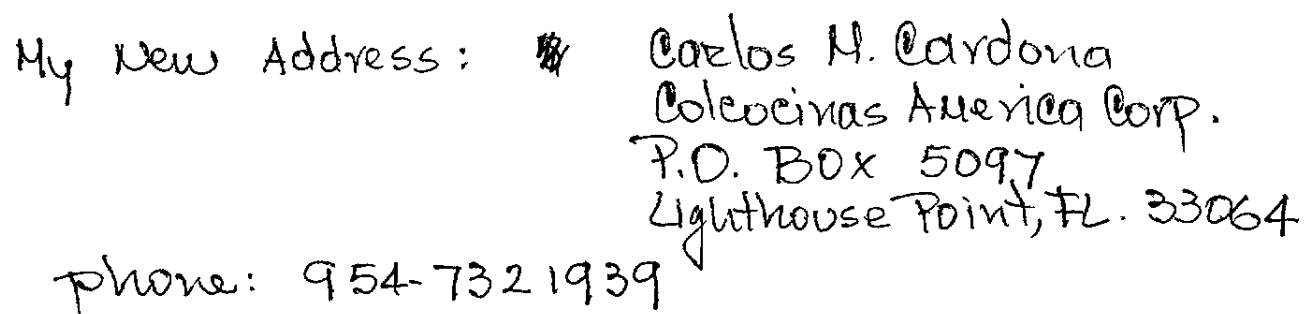 My New Address: Carlos M. Cardona
Colcocinas America Corp.
P.O. BOX 5097
Lighthouse Point, FL. 33064
phone: 954-7321939